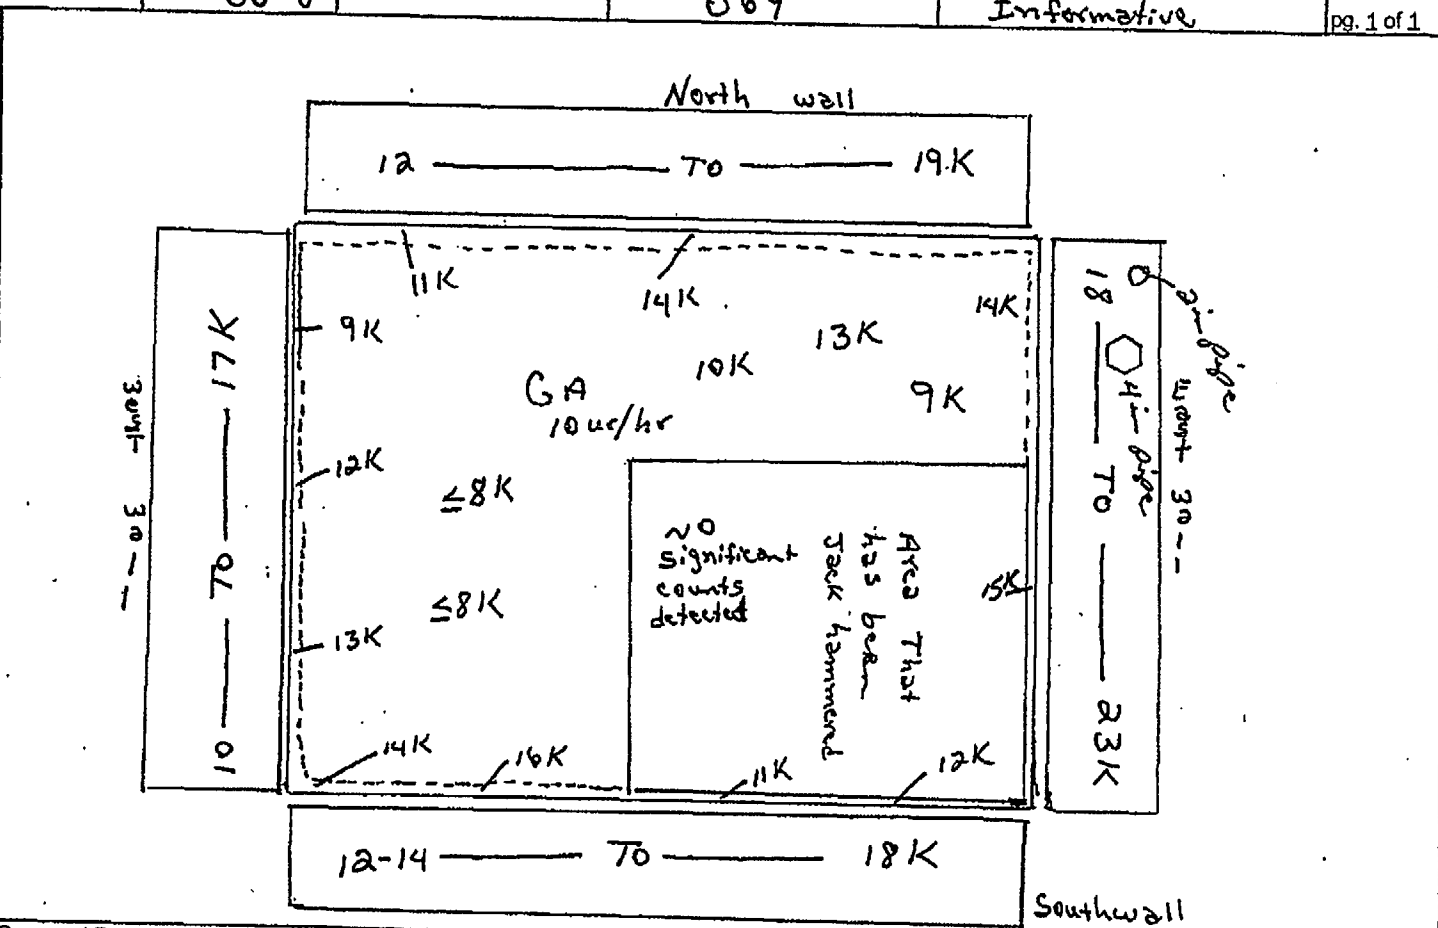 Informative
pg. 1 of 1
North wall
12 TO 19.K
11K
14K
14K
9K
13K
10K
9K
GA
10 ur/hr
12K
≤8K
≤8K
13K
14K
16K
~0
significant
counts
detected
Area That
has been
Jack hammered
15K
11K
12K
10 TO 17K
18 TO 23K
2in pipe
4in pipe
12-14 TO 18K
Southwall